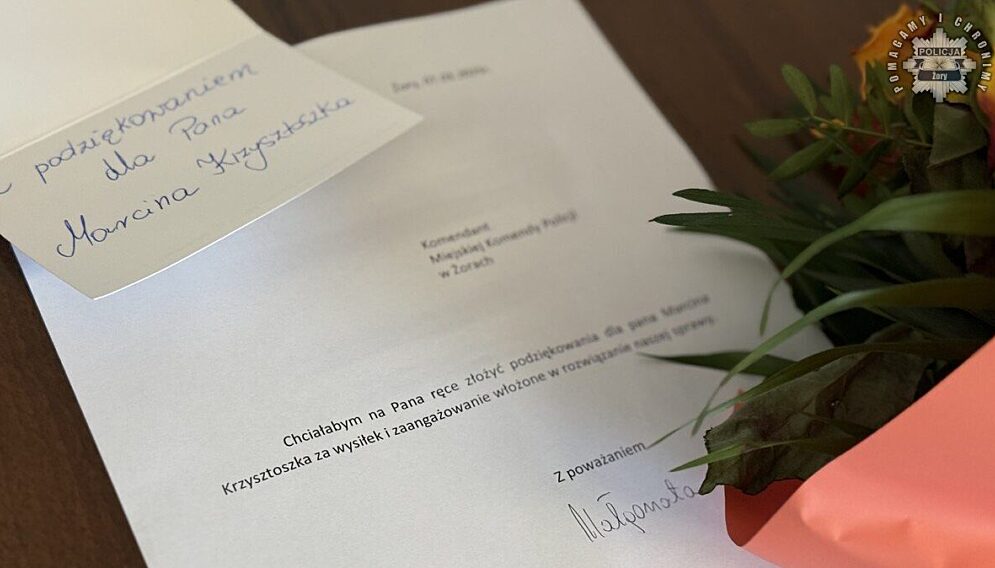 podziękowaniem
dla Pana
Marcina Krzysztoszka
Żory,
Komendant
Miejskiej Komendy Policji
w Żorach
Chciałabym na Pana ręce złożyć podziękowania dla pana Marcina
Krzysztoszka za wysiłek i zaangażowanie włożone w rozwiązanie naszej sprawy.
Z poważaniem
Małgorzata
POMAGAMY I CHRONIMY
POLICJA
Żory